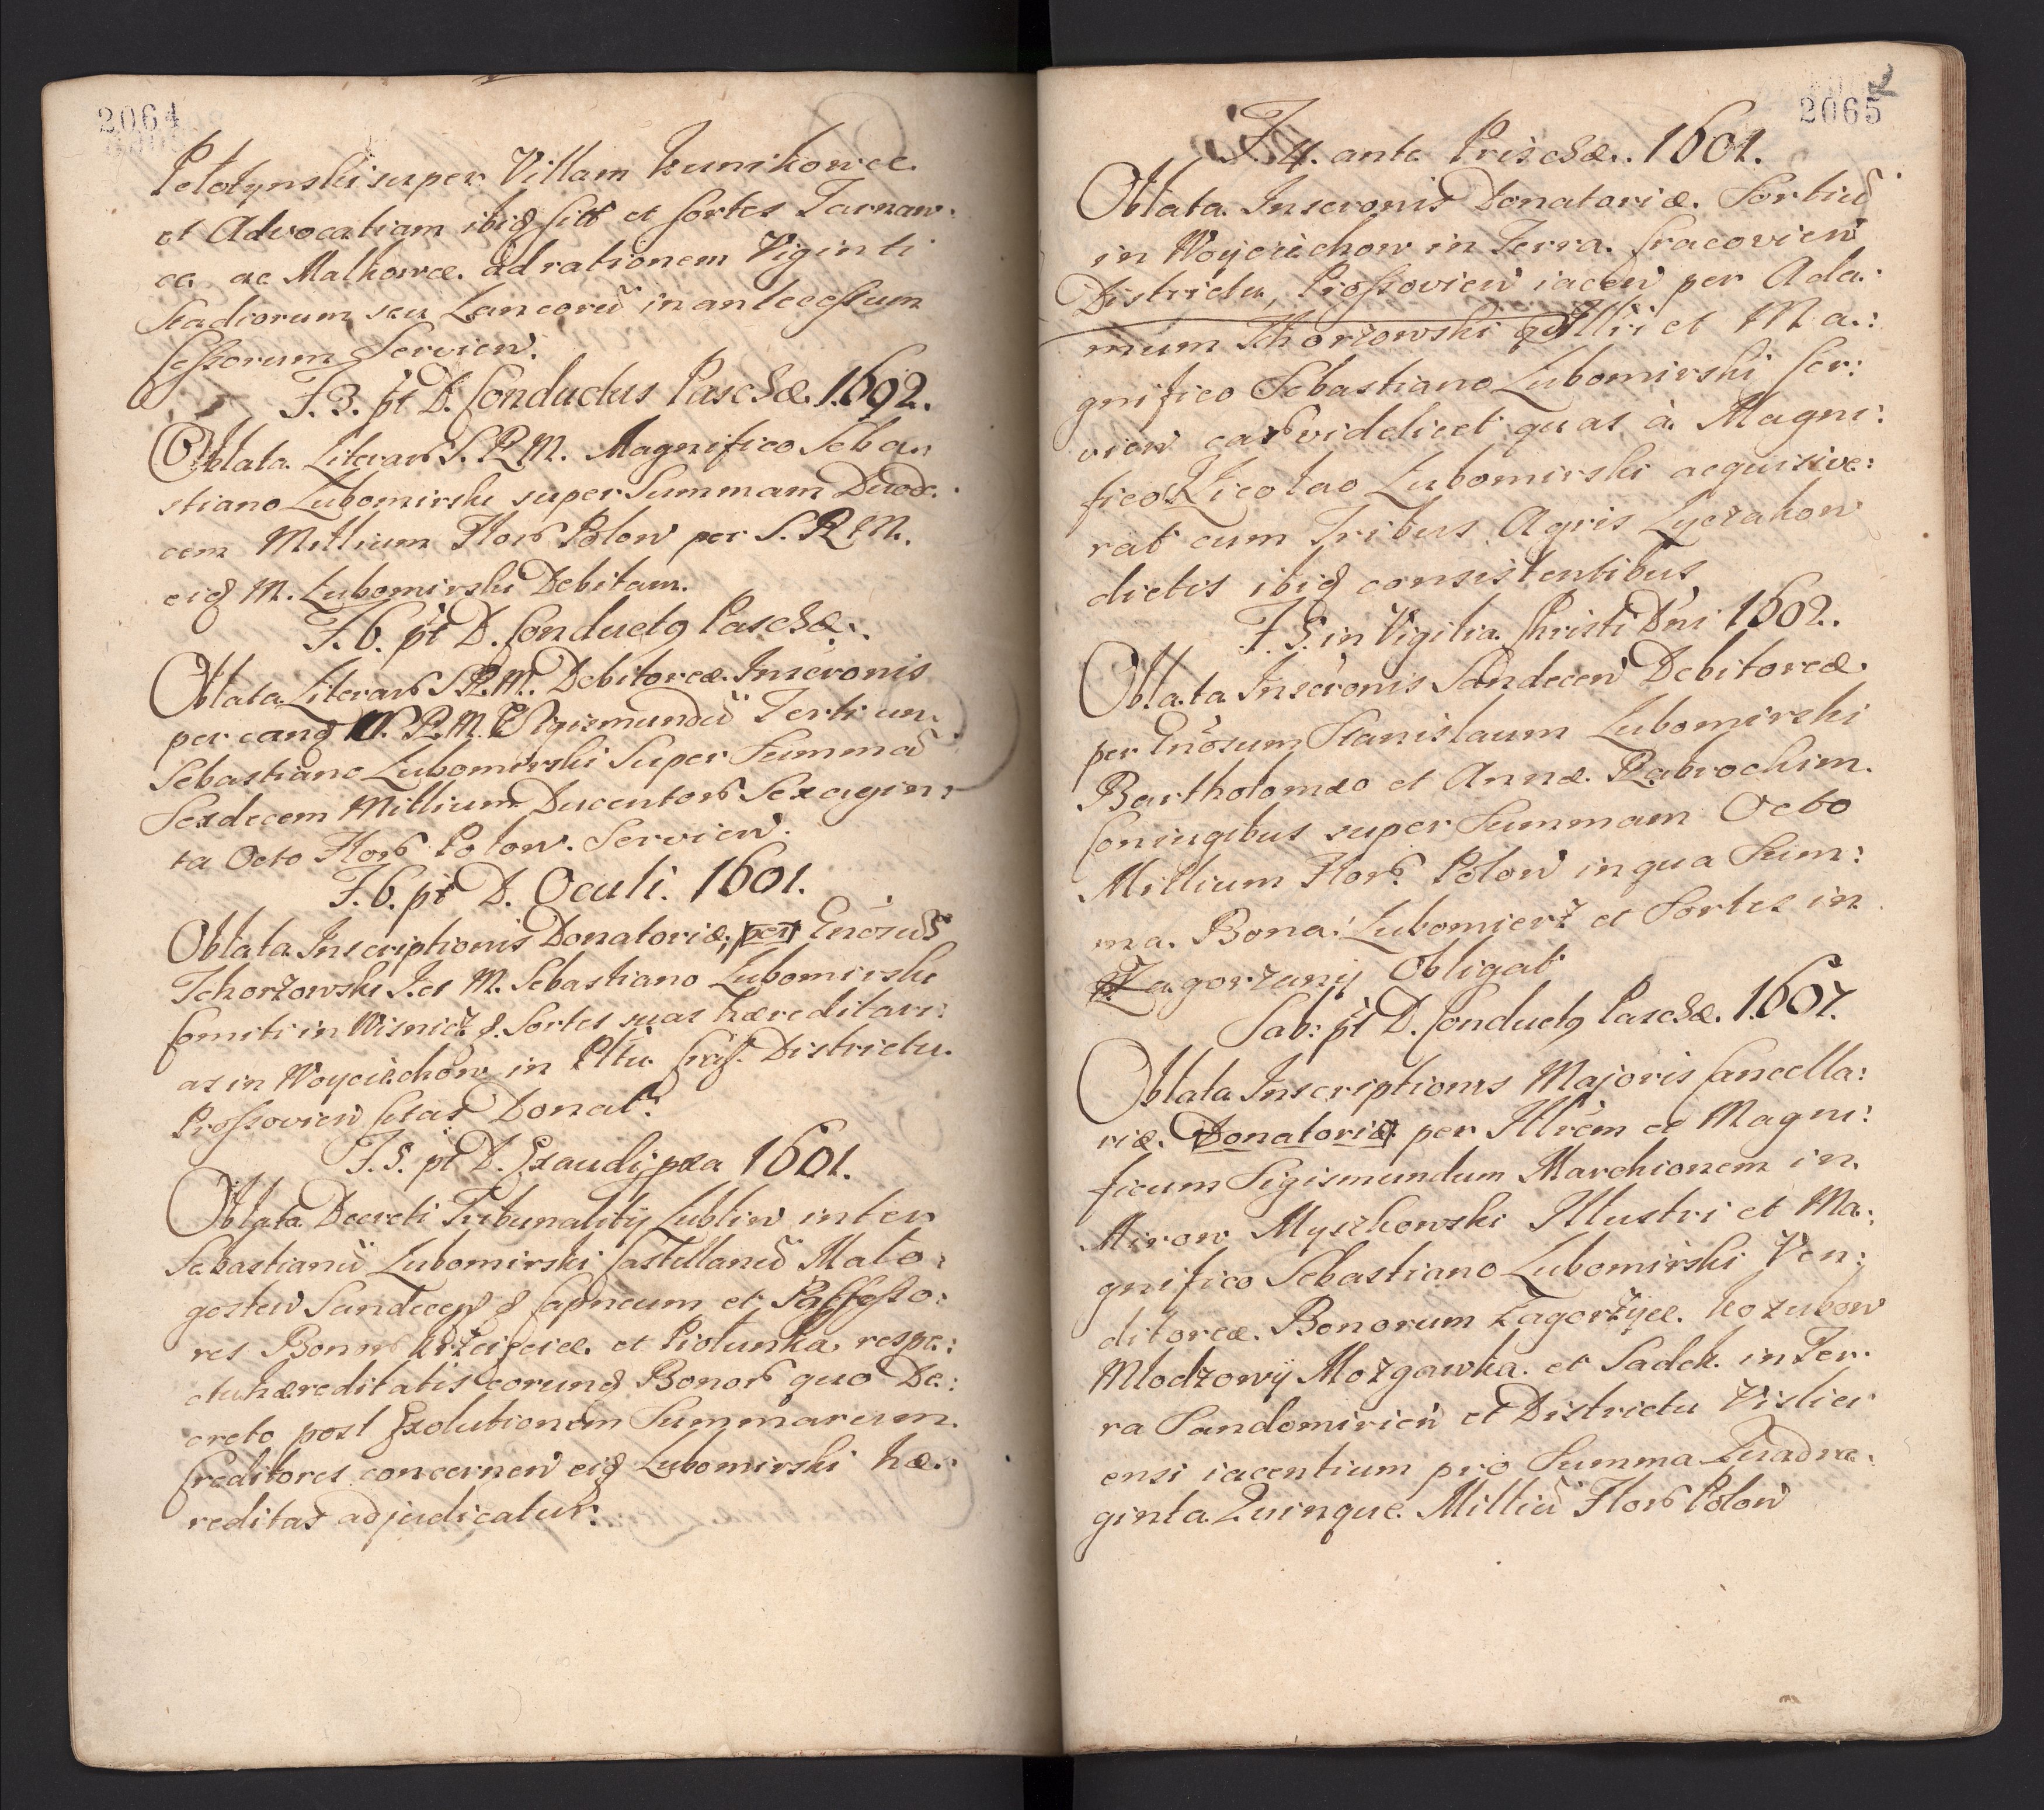 2064
Pełotynski super Villam Kunikowce
et Advocatiam ibiq sitt et sortes Tarnaw:
ce ac Malhowce ad rationem Viginti
Stadiorum seu Laneorū in antecessum
sessorum Servien.
F. 3. pt D. Conductus Paschæ. 1692.
Oblata Literar S. R. M. Magnifico Seba:
stiano Lubomirski super Summam Duode:
cem Millium Flor Polon per S. R. M.
eiq M. Lubomirski Debitam.
F. 6. pt D. Conductq Paschæ.
Oblata Literar S. R. M. Debitoreæ Inscronis
per eanq S. R. M. Sigismundū Tertium
Sebastiano Lubomirski Super Summā
Sexdecem Millium Ducentor Sexagin:
ta Octo Flor Polon. Servien.
F. 6. pt D. Oculi. 1601.
Oblata Inscriptionis Donatoriæ per Gnosus
Tchorzowski I. et M. Sebastiano Lubomirski
Comiti in Wisnicz q. Sortes suas hæreditari:
as in Woyciechow in Pltu Districtu
Prossovien sitas Donat:
F. 5. pt D. Exaudi pxa 1601.
Oblata Decreti Tribunalitij Lublin inter
Sebastianū Lubomirski Castellanū Mało:
gosten Sandecen q Capneum et Possesso:
res Bonor Krzeięcice et Piołunka respe:
ctu hæreditatis eorunq Bonor quo De:
creto post Exolutionem Summarum
Creditores concernen eiq Lubomirski hæ:
reditas adjudicatur:
2065
F. 4. ante Priscæ. 1601.
Oblata Inscronis Donatoriæ Sortiū
in Woyciechow in Terra Cracovien
Districtu, Prossovien iacen per Ada:
mum Tchorzowski Illri et Ma:
gnifico Sebastiano Lubomirski Ser:
vien eas videlicet quas à Magni:
fico Nicolao Lubomirski acquisive:
rat cum Tribus Agris Łyczakow
dictis ibiq consistentibus
F. 5. in Vigilia Christi Dni 1602.
Oblata Inscronis Sandecen Debitoreæ
per Gnosum Stanislaum Lubomirski
Bartholomæo et Annæ Rabrochim
Coniugibus super Summam Octo
Millium Flor. Polon in qua Sum:
ma Bona Lubomierz et Sortes in
Zagorzany Obligat
Sab: pt D. Conductq Paschæ. 1607.
Oblata Inscriptionis Majoris Cancella:
riæ Donatoriæ per Illrem et Magni:
ficum Sigismundum Marchionem in
Mirow Myszkowski Illustri et Ma:
gnifico Sebastiano Lubomirski Ven:
ditoreæ Bonorum Zagorzyce Kozubow
Młodzowÿ Mozgawka et Sadek in Ter:
ra Sandomirien et Districtu Vislici
ensi iacentium pro Summa Quadra:
ginta Quinque Milliū Flor Polon